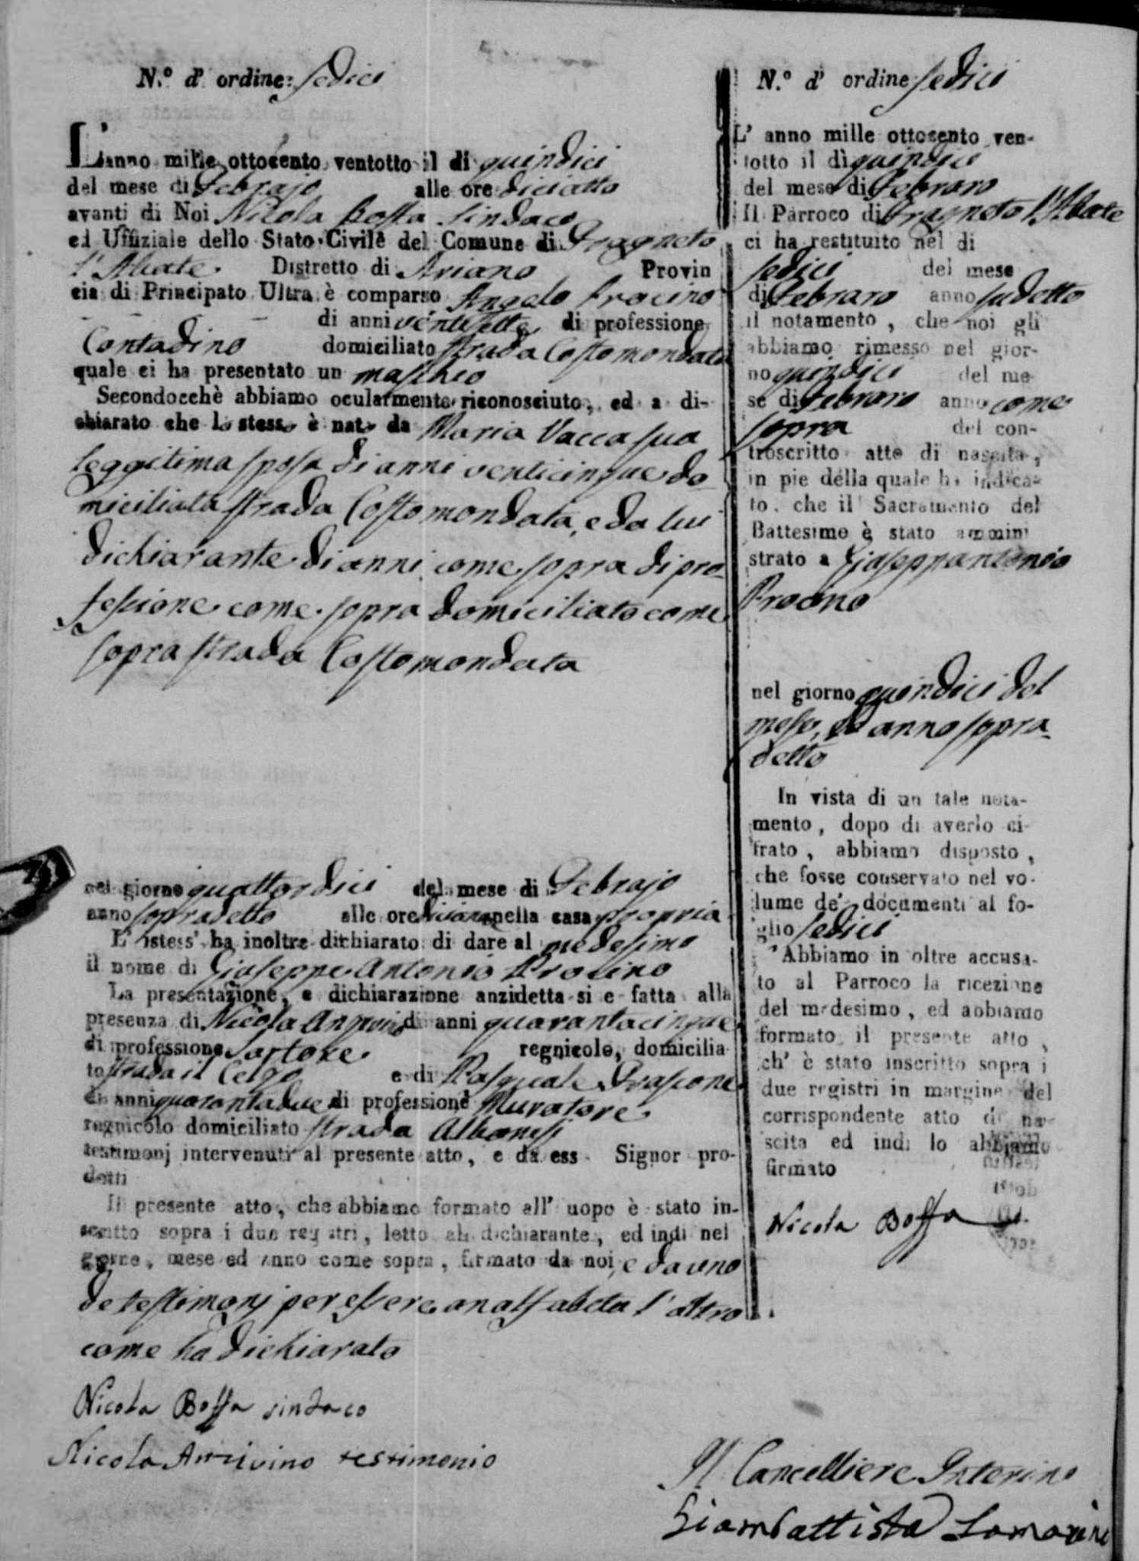 N.º d' ordine: sedici
L'anno mille ottocento ventotto il di quindici
del mese di Febrajo alle ore diciotto
avanti di Noi Nicola Boffa Sindaco
ed Uffiziale dello Stato Civile del Comune di Fragneto
l'Abate Distretto di Ariano Provin
cia di Principato Ultra è comparso Angelo Procino
di anni ventisette di professione
Contadino domiciliato strada Costomondata
quale ci ha presentato un maschio
Secondocchè abbiamo ocularmente riconosciuto, ed a di-
chiarato che lo stesso è nato da Maria Vacca sua
leggitima sposa di anni venticinque do
miciliata strada Costomondata, e da lui
dichiarante di anni come sopra di pro
fessione come sopra domiciliato come
sopra strada Costomondata
nel giorno quattordici del mese di Febrajo
anno sopradetto alle ore nella casa propria
L' istess' ha inoltre dichiarato di dare al medesimo
il nome di Giuseppe Antonio Procino
La presentazione, e dichiarazione anzidetta si e fatta alla
presenza di Nicola di anni quarantacinque
di professione Sartore regnicolo, domicilia
to strada il Celzo e di Pasquale
di anni quarantadue di professione Muratore
regnicolo domiciliato strada Albanesi
testimonj intervenuti al presente atto, e da ess Signor pro-
dotti
Il presente atto, che abbiamo formato all' uopo è stato in-
scritto sopra i due registri, letto al dichiarante, ed indi nel
giorno, mese ed anno come sopra, firmato da noi, e da uno
de testimonj per essere analfabeta l'altro
come ha dichiarato
Nicola Boffa sindaco
Nicola testimonio
N.º d' ordine sedici
L' anno mille ottocento ven-
totto il dì quindici
del mese di Febraro
Il Parroco di Fragneto l'Abate
ci ha restituito nel di
sedici del mese
di Febraro anno sudetto
il notamento, che noi gli
abbiamo rimesso nel gior-
no quindici del me
se di Febraro anno come
sopra del con-
troscritto atto di nascita,
in pie della quale ha indica-
to, che il Sacramento del
Battesimo è stato ammini
strato a Giuseppantonio
Procino
nel giorno quindici del
mese, ed anno sopra
detto
In vista di un tale nota-
mento, dopo di averlo ci-
frato, abbiamo disposto,
che fosse conservato nel vo-
lume de' documenti al fo-
glio sedici
Abbiamo in oltre accusa-
to al Parroco la ricezione
del medesimo, ed abbiamo
formato il presente atto,
ch' è stato inscritto sopra i
due registri in margine del
corrispondente atto di na-
scita ed indi lo abbiamo
firmato
Nicola Boffa
Il Cancelliere Interino
Giambattista